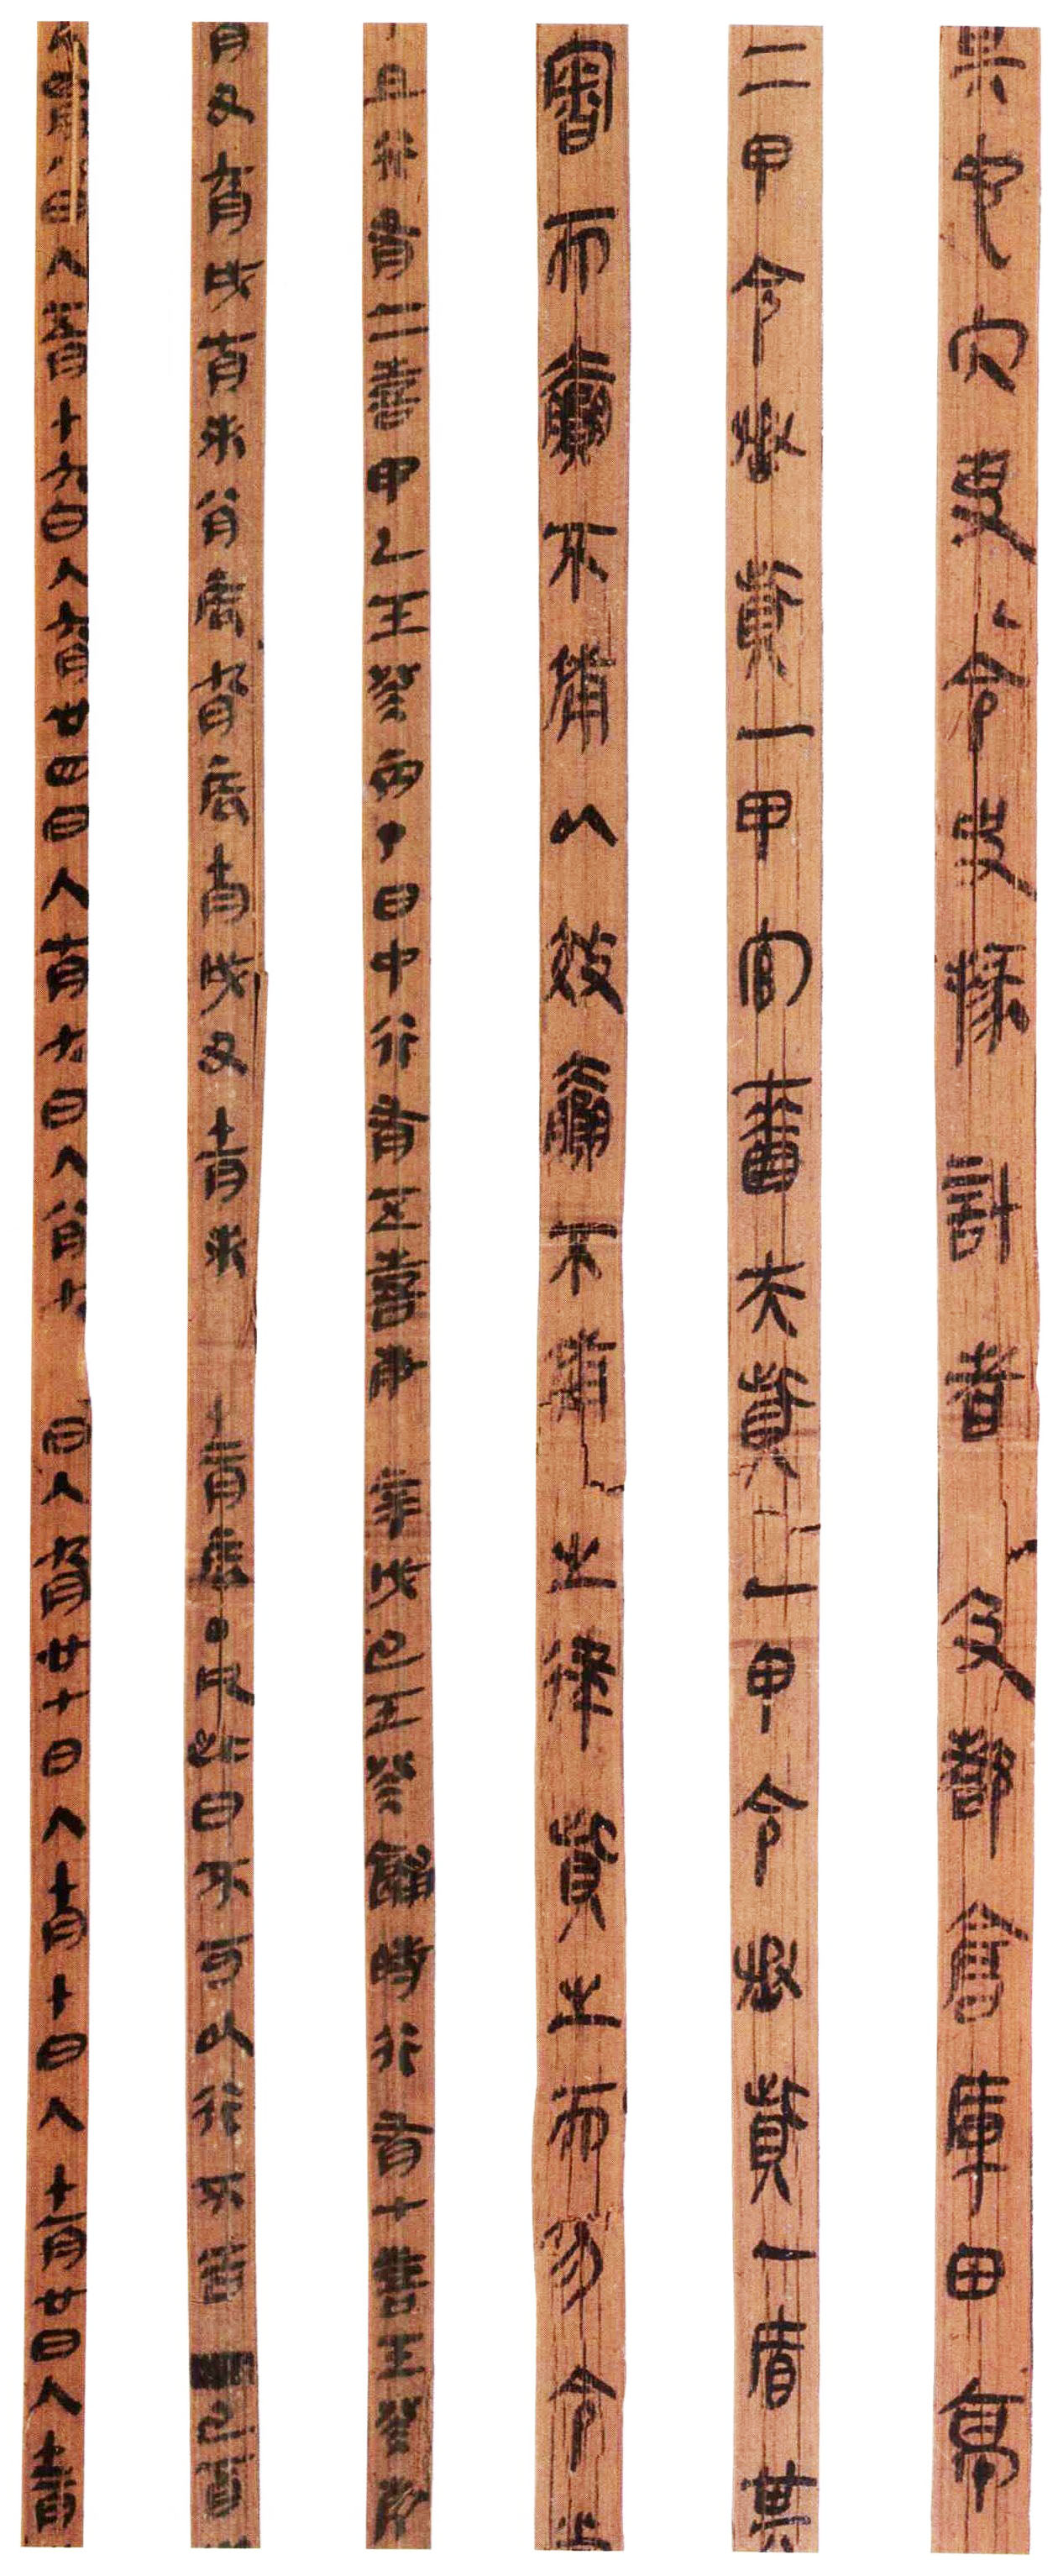 其它冗吏令史掾計者及都倉庫田亭
二甲令丞貲一甲官嗇夫貲一甲令丞貲一盾其
審而贏不備以效贏不備之律貲之而勿令
旦行有二喜甲乙壬癸丙丁日中行有五喜庚辛戊己壬癸餔時行有七喜壬癸庚
月丑六月戌七月未八月辰九月辰十月戌丑十一月未十二月辰·凡此日不可以行不吉 己酉
四月八日入五月十六日入六月廿四日入七月九日入八月九日入九月廿七日入十月十日入十一月廿日入十二月